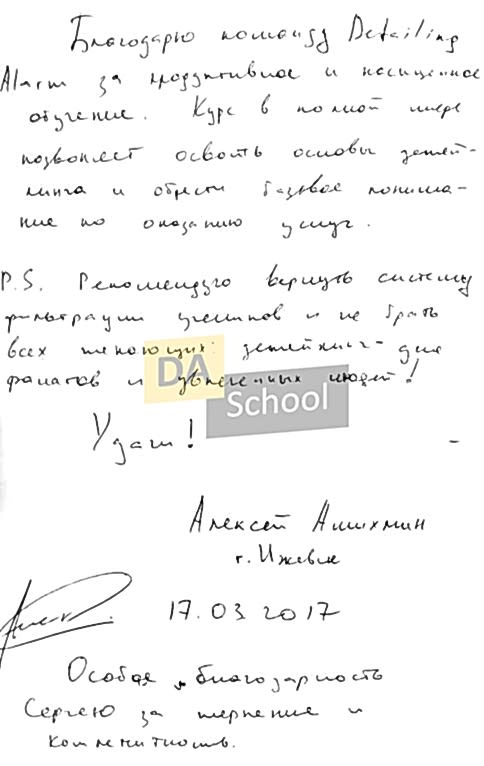 Благодарю команду Detailing
Alarm за продуктивное и насыщенное
обучение. Курс в полной мере
позволяет освоить основы детей-
линга и обрести базовое понима-
ние по оказанию услуг.
P.S. Рекомендую вернуть систему
фильтрации учеников и не брать
всех желающих: детейлинг - для
фанатов и увлеченных людей!
DA
School
Удачи!
Алексей Анишхмин
г. Ижевск
17.03 2017
Особая благодарность
Сергею за терпение и
компетитность.